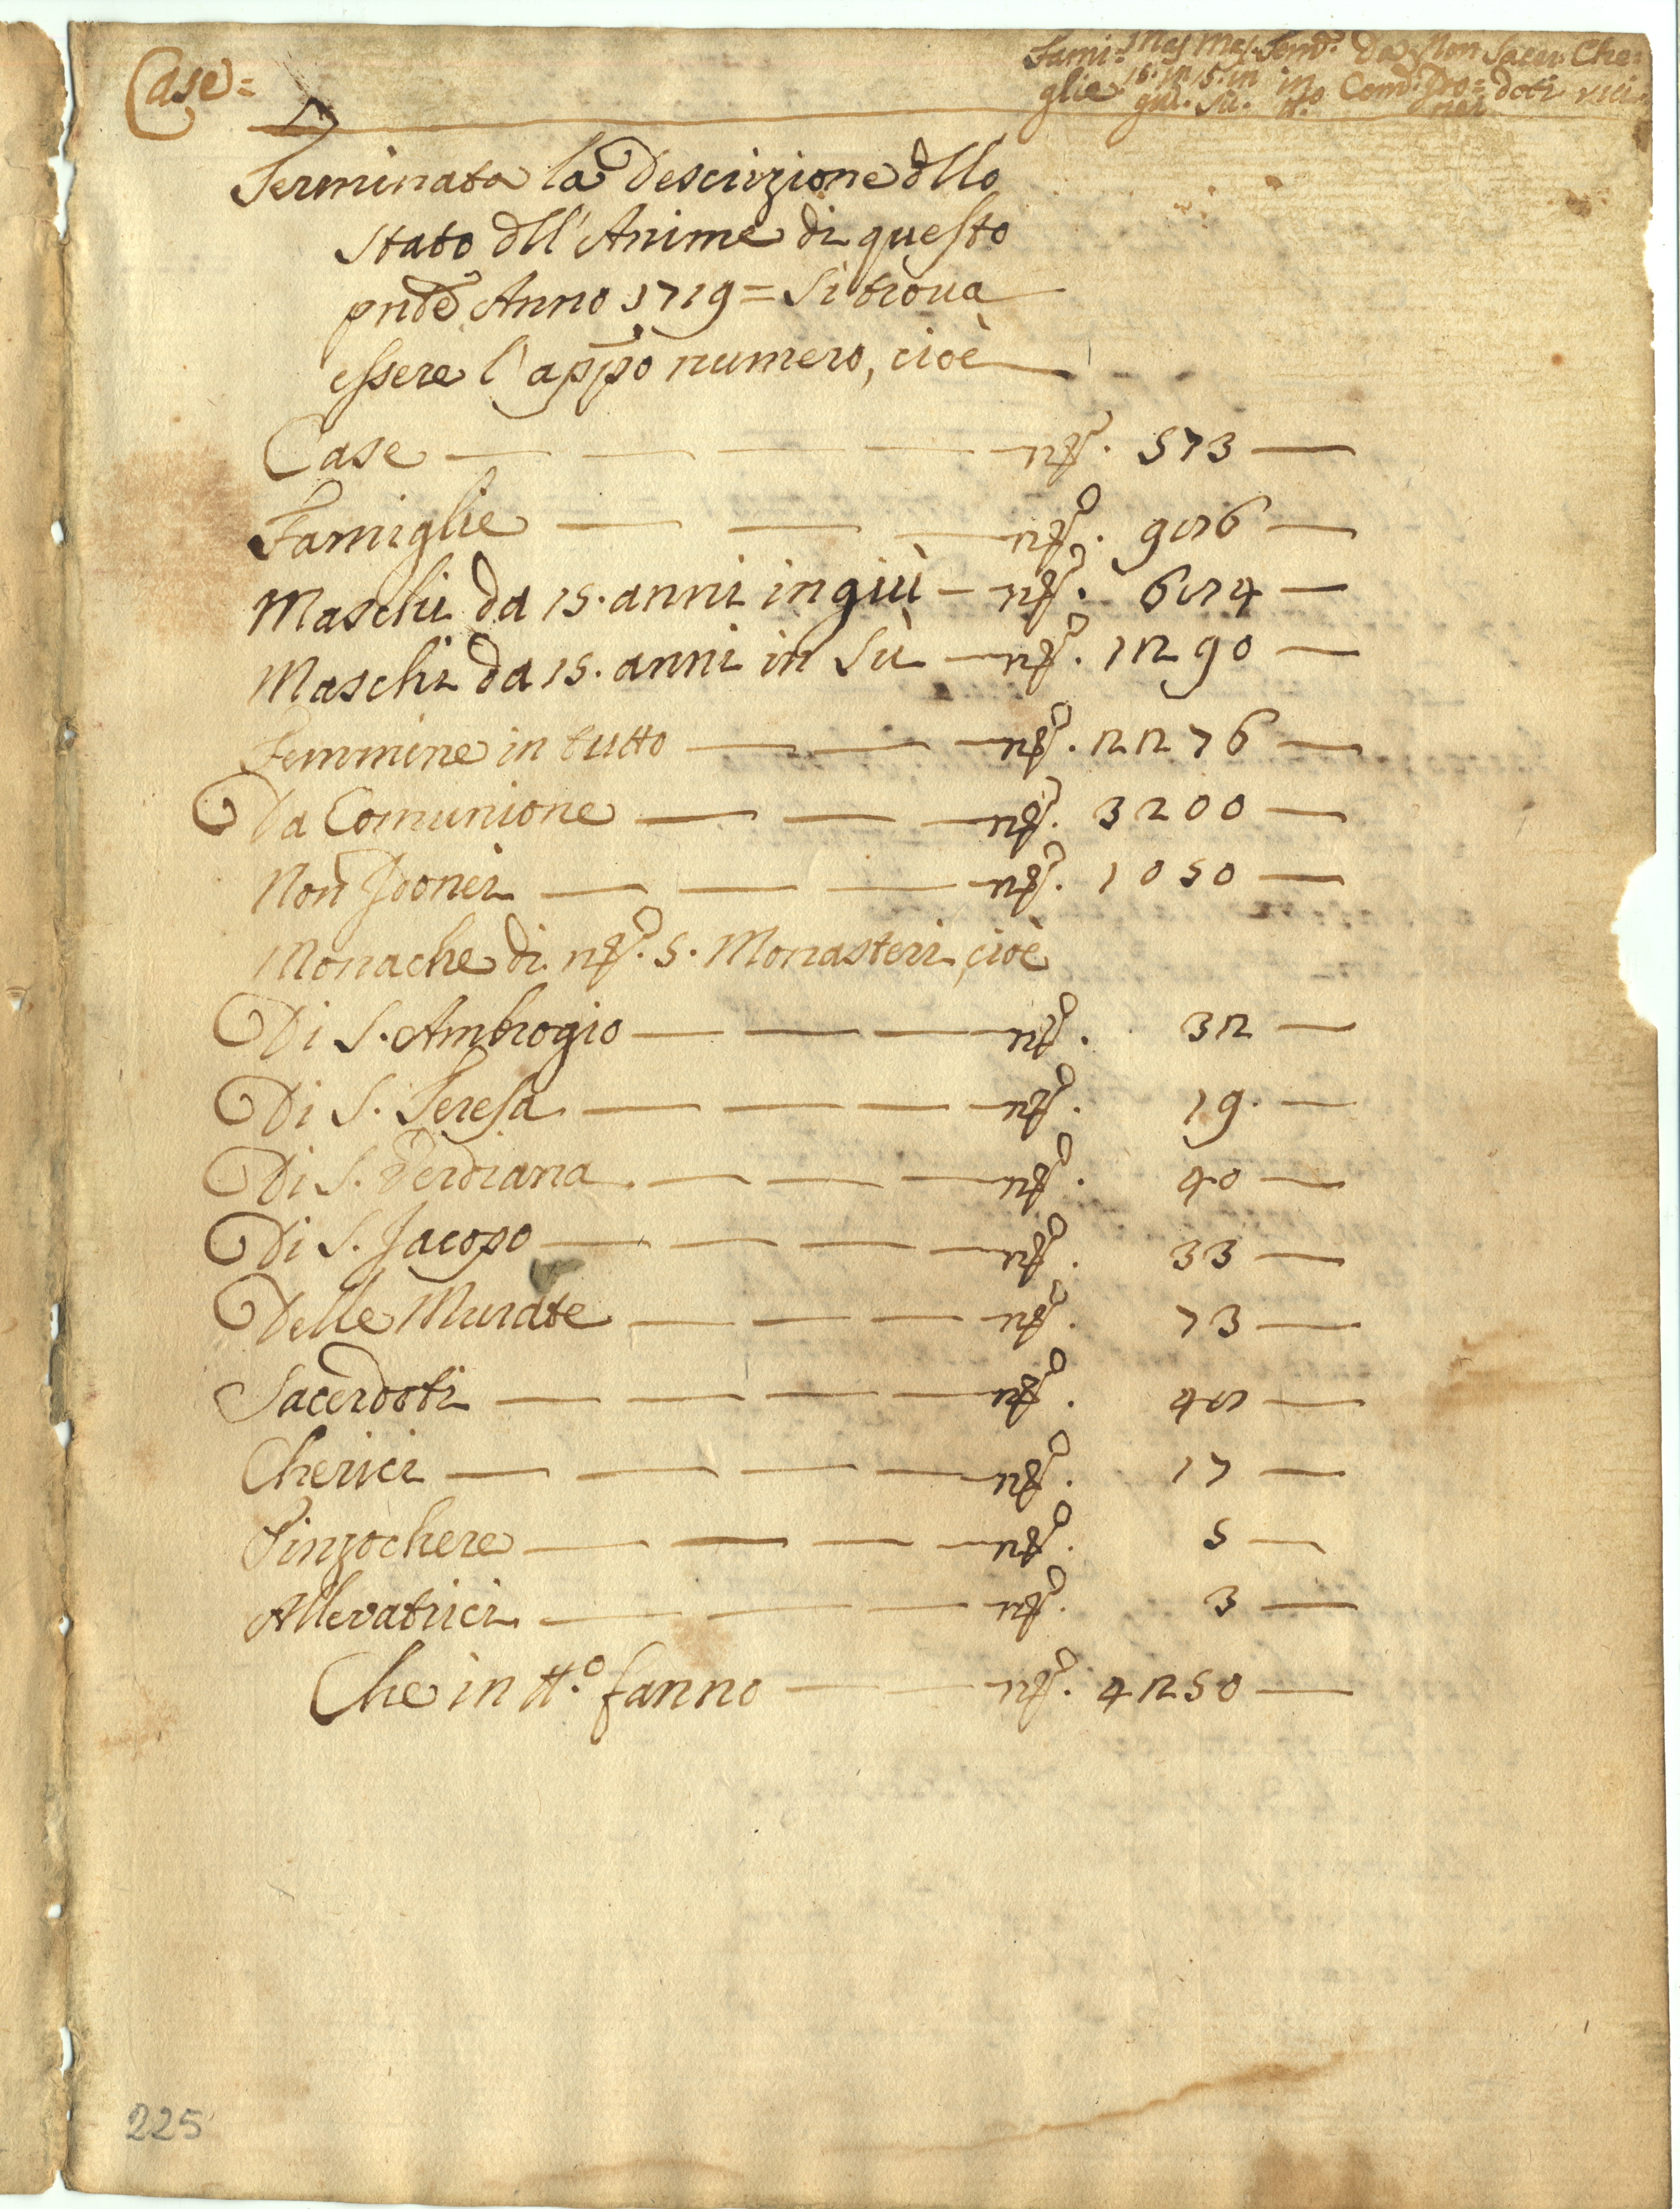 Case= Fami= Mas Mas. Fem.e Da Non Sacer. Che=
glie 15. in 15. in in Com.e Ido= doti rici
giù. Sù. tt.o nei
Terminata la Descrizione dllo
Stato dll'Anime di questo
pnte Anno 1719 = Si troua
essere l'appo numero, cioè
Case — — — — n°. 573 —
Famiglie — — — n°. 986 —
Maschi da 15. anni in giù — n°. 684 —
Maschi da 15. anni in Sù — n°. 1290 —
Femmine in tutto — — — n°. 2276 —
Da Comunione — — — n°. 3200 —
Non Idonei — — — n°. 1050 —
Monache di n°. 5. Monasteri, cioè
Di S. Ambrogio — — — — n°. 32 —
Di S. Teresa — — — — n°. 19. —
Di S. Verdiana — — — — n°. 40 —
Di S. Jacopo — — — — n°. 33 —
Delle Murate — — — — n°. 73 —
Sacerdoti — — — — n°. 48 —
Cherici — — — — n°. 17 —
Pinzochere — — — — n°. 5 —
Allevatrici — — — — n°. 3 —
Che in tt.° fanno — — n°. 4250 —
225